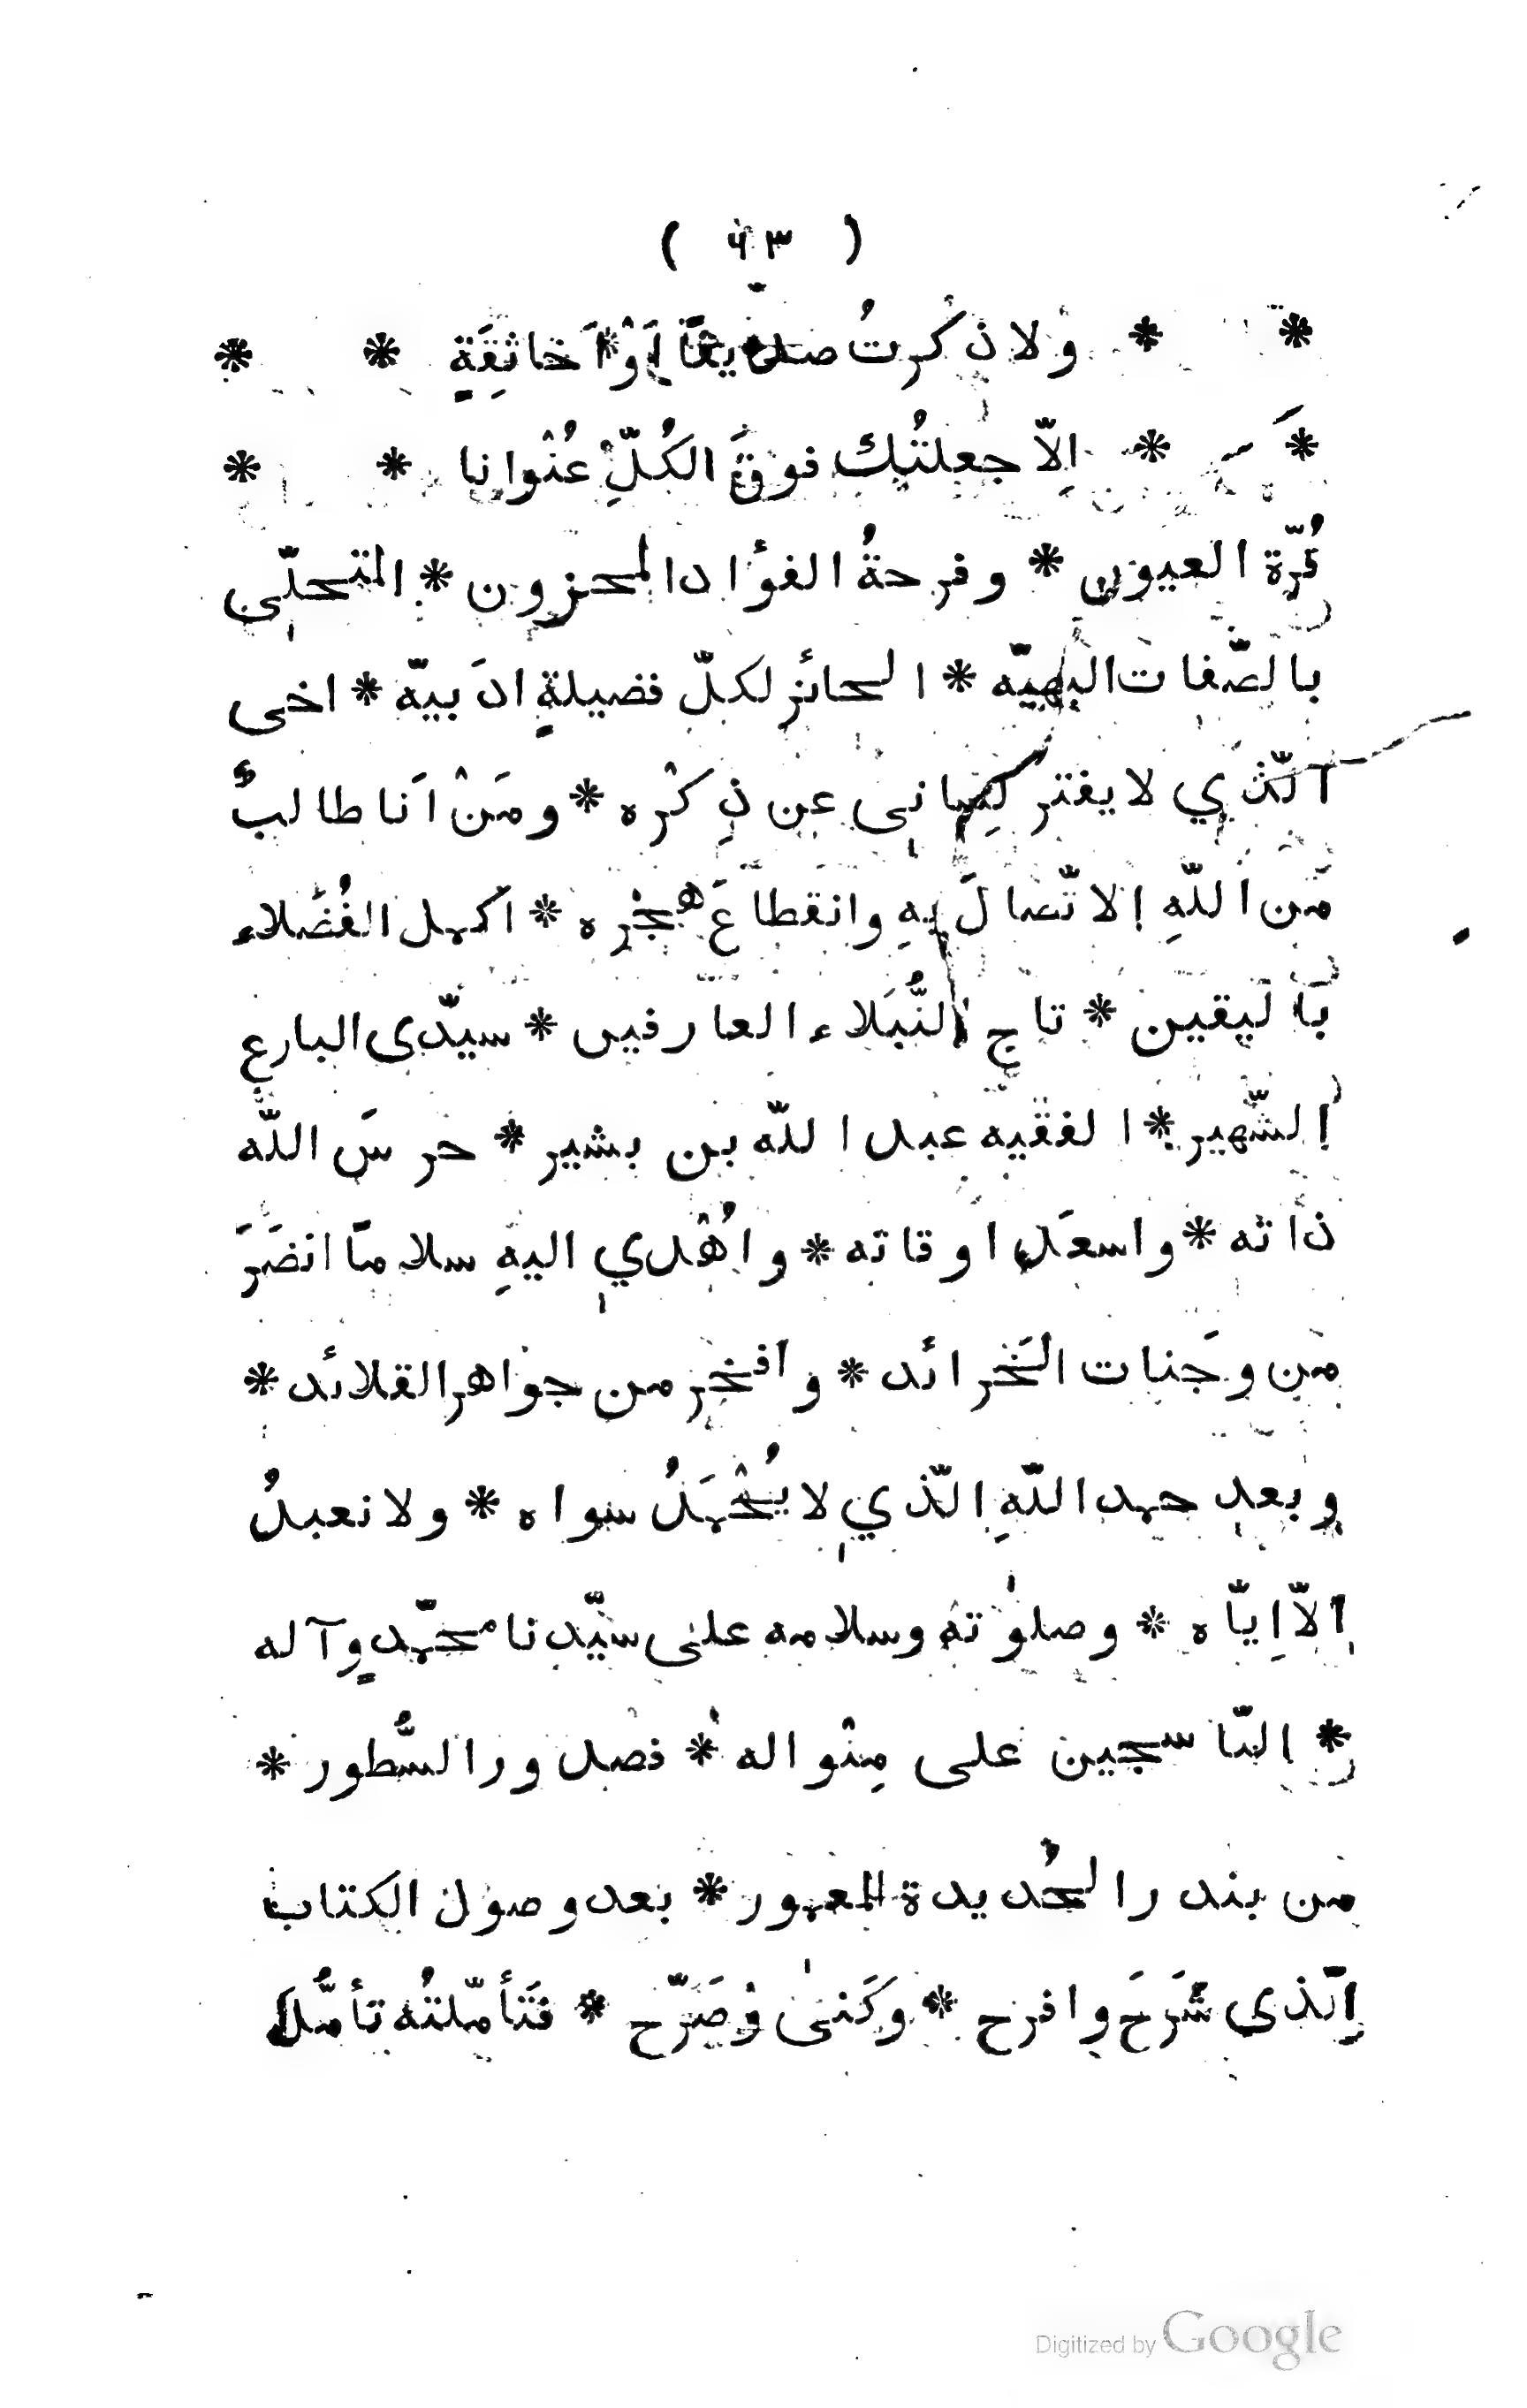 ( ٦٣ )
* * ولا ذكرتُ صديقًا اَوْ اَخا ثِقَةٍ * *
* * اِلّا جعلتُك فوقَ الكُلِّ عُنْوانا * *
قُرّة العيون * وفرحةُ الفؤاد المحزون * المتحلّى
بالصّفات البهيّه * الحائز لكلّ فضيلةٍ ادَبيّه * اخى
الّذي لا يفتر لِسانى عن ذِكْره * ومَنْ اَنا طالبٌ
من اللّهِ الاتّصالَ بهِ وانقطاعَ هجْره * اكمل الفُضَلاء
باليقين * تاج النُّبَلاء العارفين * سيّدى البارع
الشّهير * الفقيه عبد اللّه بن بشير * حرسَ اللّه
ذاته * واسعَد اوقاته * واُهْدي اليهِ سلامًا انضَرَ
من وجَنات الخَرائد * وافْخر من جواهر القلائد *
وبعد حمد اللّهِ الّذي لا يُحْمَدُ سواه * ولا نعبدُ
الّا اِيّاه * وصلوٰته وسلامه على سيّدنا محمّدٍ وآله
* النّاسجين على مِنْواله * فصدور السُّطور *
من بندر الحُديدة المعمور * بعد وصول الكتاب
الّذي شَرَحَ وافرح * وكَنىٰ وصَرّح * فتَأمّلتُه تأمُّلَ
Digitized by Google